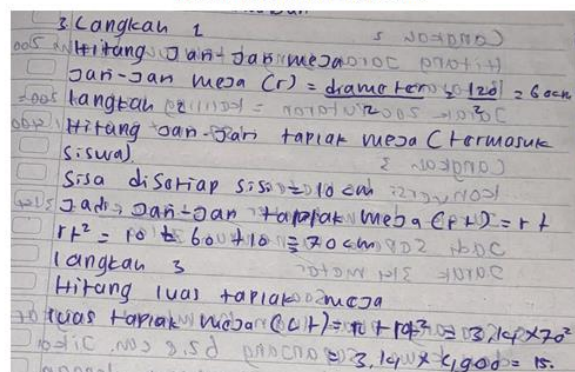 3. Langkah 1
Hitang Jari-Jari meja
Jari-Jari meja (r) = diameter/2 = 120/2 = 60cm
Langkah 2
Hitang Jari-Jari taplak meja (termasuk
siswa)
Sisa disetiap sisi = 10 cm
Jadi, Jari-Jari taplak meja
60 + 10 = 70 cm
Langkah 3
Hitung luas taplak meja
Luas taplak meja = 3,14 x 70²
= 3,14 x 4900 = 15.